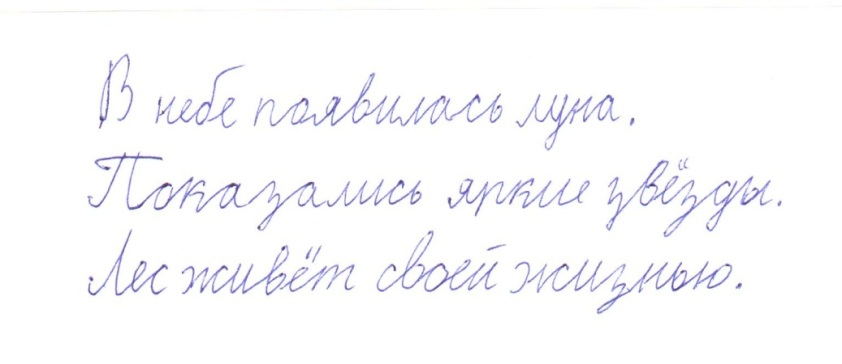 В небе появилась луна.
Показались яркие звёзды.
Лес живёт своей жизнью.